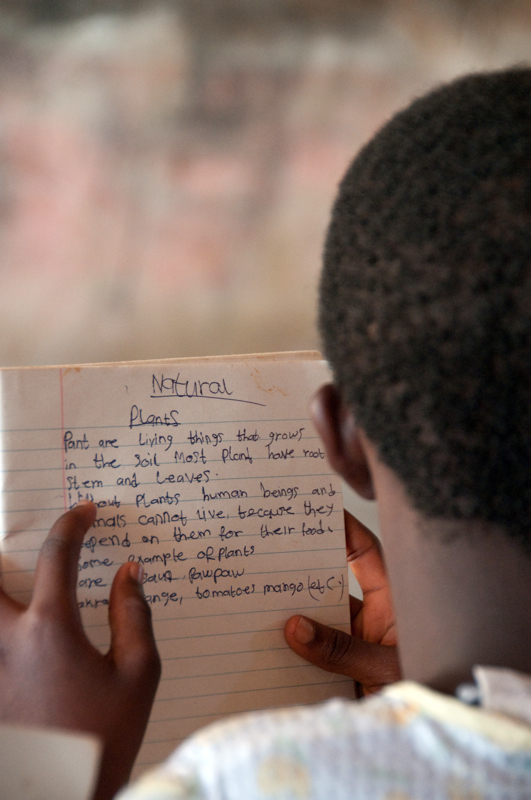 Natural
Plants
Pant are Living things that grows
in the soil Most Plant have root
Stem and Leaves.
Plants human beings and
cannot Live, because they
on them for their food.
Example of Plants
are Pawpaw
tomatoes mango (etc.)